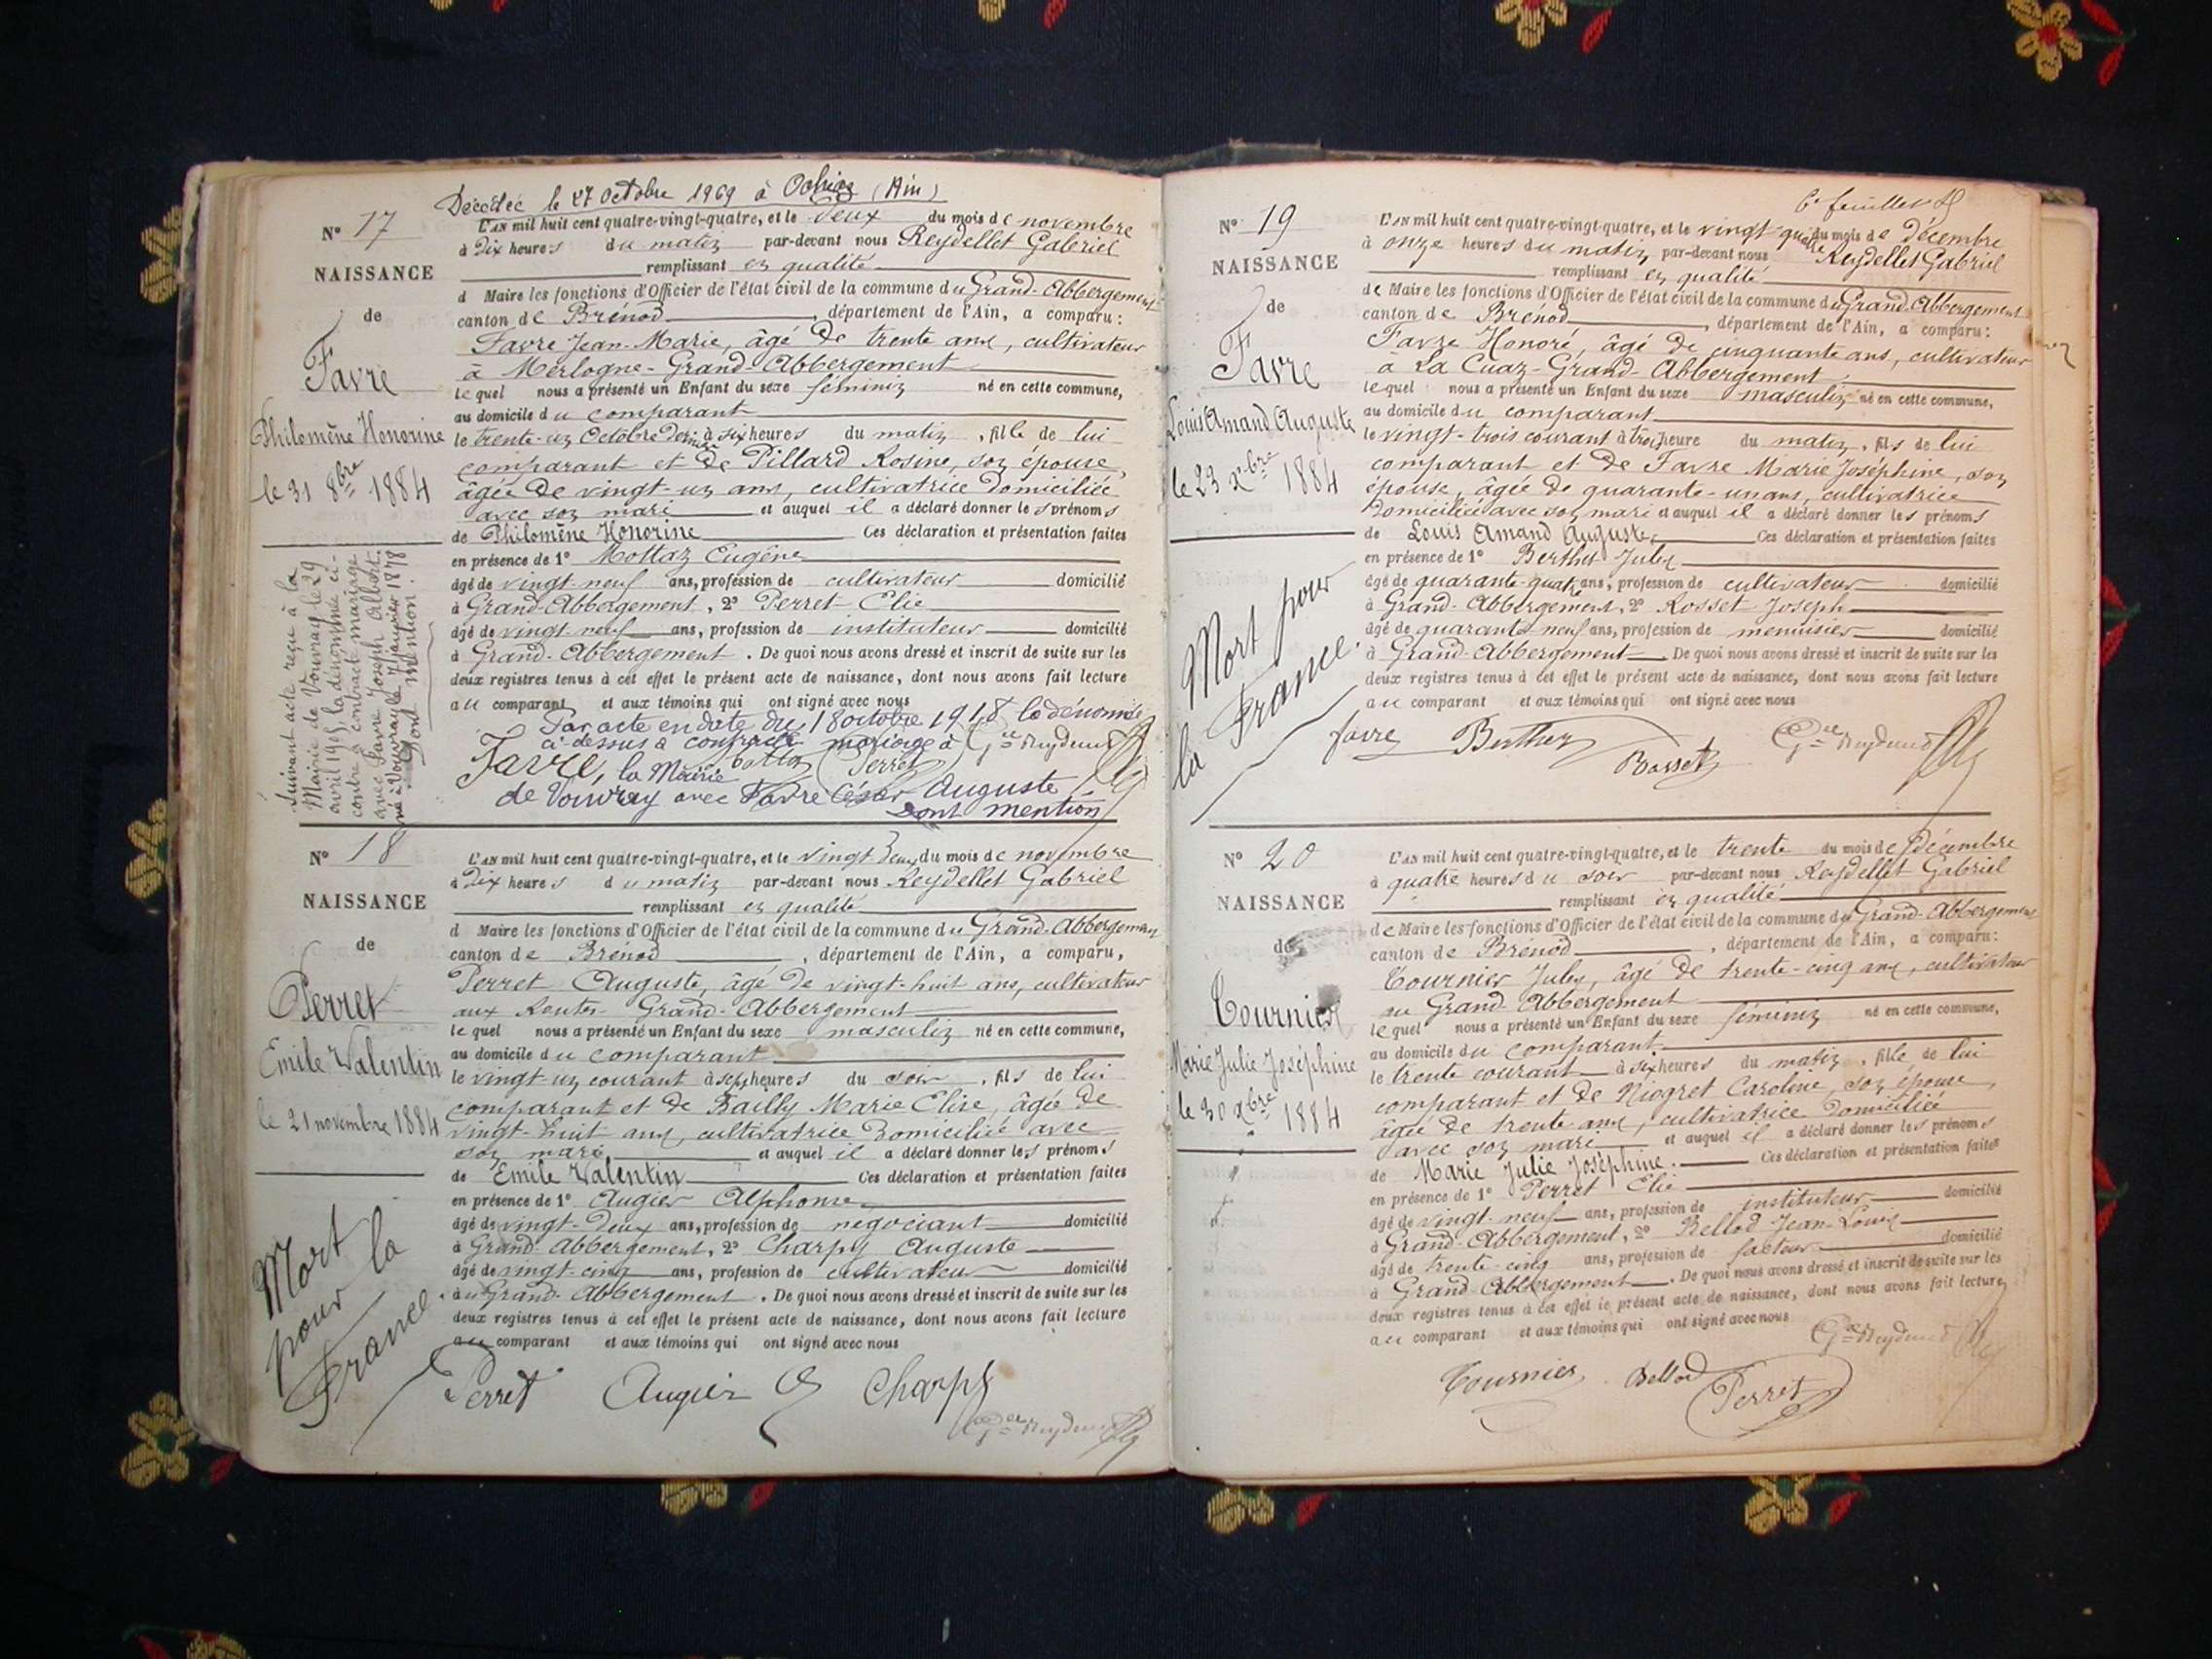 Décédée le 27 Octobre 1969 à Ochiaz (Ain)
N° 17
NAISSANCE
de
Favre
Philomène Honorine
le 31 8bre 1884
Suivant acte reçu à la
Mairie de Vouvray le 29
avril 1905, la dénommée ci-
contre a contracté mariage
avec Favre Joseph Albert
né à Vouvray le 7 Janvier 1878
Dont mention.
L'an mil huit cent quatre-vingt-quatre, et le deux du mois de novembre
à dix heures du matin par-devant nous Reydellet Gabriel
remplissant en qualité
d Maire les fonctions d'Officier de l'état civil de la commune du Grand-Abbergement
canton de Brénod, département de l'Ain, a comparu :
Favre Jean-Marie, âgé de trente ans, cultivateur
à Merlogne-Grand-Abbergement
lequel nous a présenté un Enfant du sexe féminin né en cette commune,
au domicile du comparant
le trente-un Octobre dernier à six heures du matin, fille de lui
comparant et de Pillard Rosine, son épouse,
âgée de vingt-un ans, cultivatrice domiciliée
avec son mari et auquel il a déclaré donner les prénoms
de Philomène Honorine Ces déclaration et présentation faites
en présence de 1° Mottaz Eugène
âgé de vingt-neuf ans, profession de cultivateur domicilié
à Grand-Abbergement, 2° Perret Elie
âgé de vingt-neuf ans, profession de instituteur domicilié
à Grand-Abbergement. De quoi nous avons dressé et inscrit de suite sur les
deux registres tenus à cet effet le présent acte de naissance, dont nous avons fait lecture
au comparant et aux témoins qui ont signé avec nous
Par acte en date du 18 octobre 1918 la dénommée
ci-dessus a contracté mariage à
Favre, la Mairie Perret
de Vouvray avec Favre César Auguste
Dont mention
N° 18
NAISSANCE
de
Perret
Emile Valentin
le 21 novembre 1884
Mort
pour la
France.
L'an mil huit cent quatre-vingt-quatre, et le vingt-deux du mois de novembre
à dix heures du matin par-devant nous Reydellet Gabriel
remplissant en qualité
d Maire les fonctions d'Officier de l'état civil de la commune du Grand-Abbergement
canton de Brénod, département de l'Ain, a comparu,
Perret Auguste, âgé de vingt-huit ans, cultivateur
aux Routes-Grand-Abbergement
lequel nous a présenté un Enfant du sexe masculin né en cette commune,
au domicile du comparant
le vingt-un courant à sept heures du soir, fils de lui
comparant et de Bailly Marie Elise, âgée de
vingt-huit ans, cultivatrice domiciliée avec
son mari et auquel il a déclaré donner les prénoms
de Emile Valentin Ces déclaration et présentation faites
en présence de 1° Augier Alphonse
âgé de vingt-deux ans, profession de négociant domicilié
à Grand-Abbergement, 2° Charpy Auguste
âgé de vingt-cinq ans, profession de cultivateur domicilié
au Grand-Abbergement. De quoi nous avons dressé et inscrit de suite sur les
deux registres tenus à cet effet le présent acte de naissance, dont nous avons fait lecture
au comparant et aux témoins qui ont signé avec nous
Perret Augier Charpy
6e feuillet
N° 19
NAISSANCE
de
Favre
Louis Amand Auguste
le 23 Xbre 1884
Mort pour
la France.
L'an mil huit cent quatre-vingt-quatre, et le vingt-quatre du mois de décembre
à onze heures du matin par-devant nous Reydellet Gabriel
remplissant en qualité
de Maire les fonctions d'Officier de l'état civil de la commune du Grand-Abbergement
canton de Brénod, département de l'Ain, a comparu :
Favre Honoré, âgé de cinquante ans, cultivateur
à La Cuaz-Grand-Abbergement
lequel nous a présenté un Enfant du sexe masculin né en cette commune,
au domicile du comparant
le vingt-trois courant à trois heure du matin, fils de lui
comparant et de Favre Marie Joséphine, son
épouse, âgée de quarante-un ans, cultivatrice
domiciliée avec son mari et auquel il a déclaré donner les prénoms
de Louis Amand Auguste, Ces déclaration et présentation faites
en présence de 1° Berthet Jules
âgé de quarante-quatre ans, profession de cultivateur domicilié
à Grand-Abbergement, 2° Rosset Joseph
âgé de quarante-neuf ans, profession de menuisier domicilié
à Grand-Abbergement. De quoi nous avons dressé et inscrit de suite sur les
deux registres tenus à cet effet le présent acte de naissance, dont nous avons fait lecture
au comparant et aux témoins qui ont signé avec nous
favre Berthet
Rosset
N° 20
NAISSANCE
de
Tournier
Marie Julie Joséphine
le 30 Xbre 1884
L'an mil huit cent quatre-vingt-quatre, et le trente du mois de décembre
à quatre heures du soir par-devant nous Reydellet Gabriel
remplissant en qualité
de Maire les fonctions d'Officier de l'état civil de la commune du Grand-Abbergement
canton de Brénod, département de l'Ain, a comparu :
Tournier Jules, âgé de trente-cinq ans, cultivateur
au Grand-Abbergement
lequel nous a présenté un Enfant du sexe féminin né en cette commune,
au domicile du comparant
le trente courant à six heures du matin, fille de lui
comparant et de Niogret Caroline, son épouse,
âgée de trente ans, cultivatrice domiciliée
avec son mari et auquel il a déclaré donner les prénoms
de Marie Julie Joséphine. Ces déclaration et présentation faites
en présence de 1° Perret Elie
âgé de vingt-neuf ans, profession de instituteur domicilié
à Grand-Abbergement, 2° Bellod Jean-Louis
âgé de trente-cinq ans, profession de facteur domicilié
à Grand-Abbergement. De quoi nous avons dressé et inscrit de suite sur les
deux registres tenus à cet effet le présent acte de naissance, dont nous avons fait lecture
au comparant et aux témoins qui ont signé avec nous
Tournier Bellod Perret